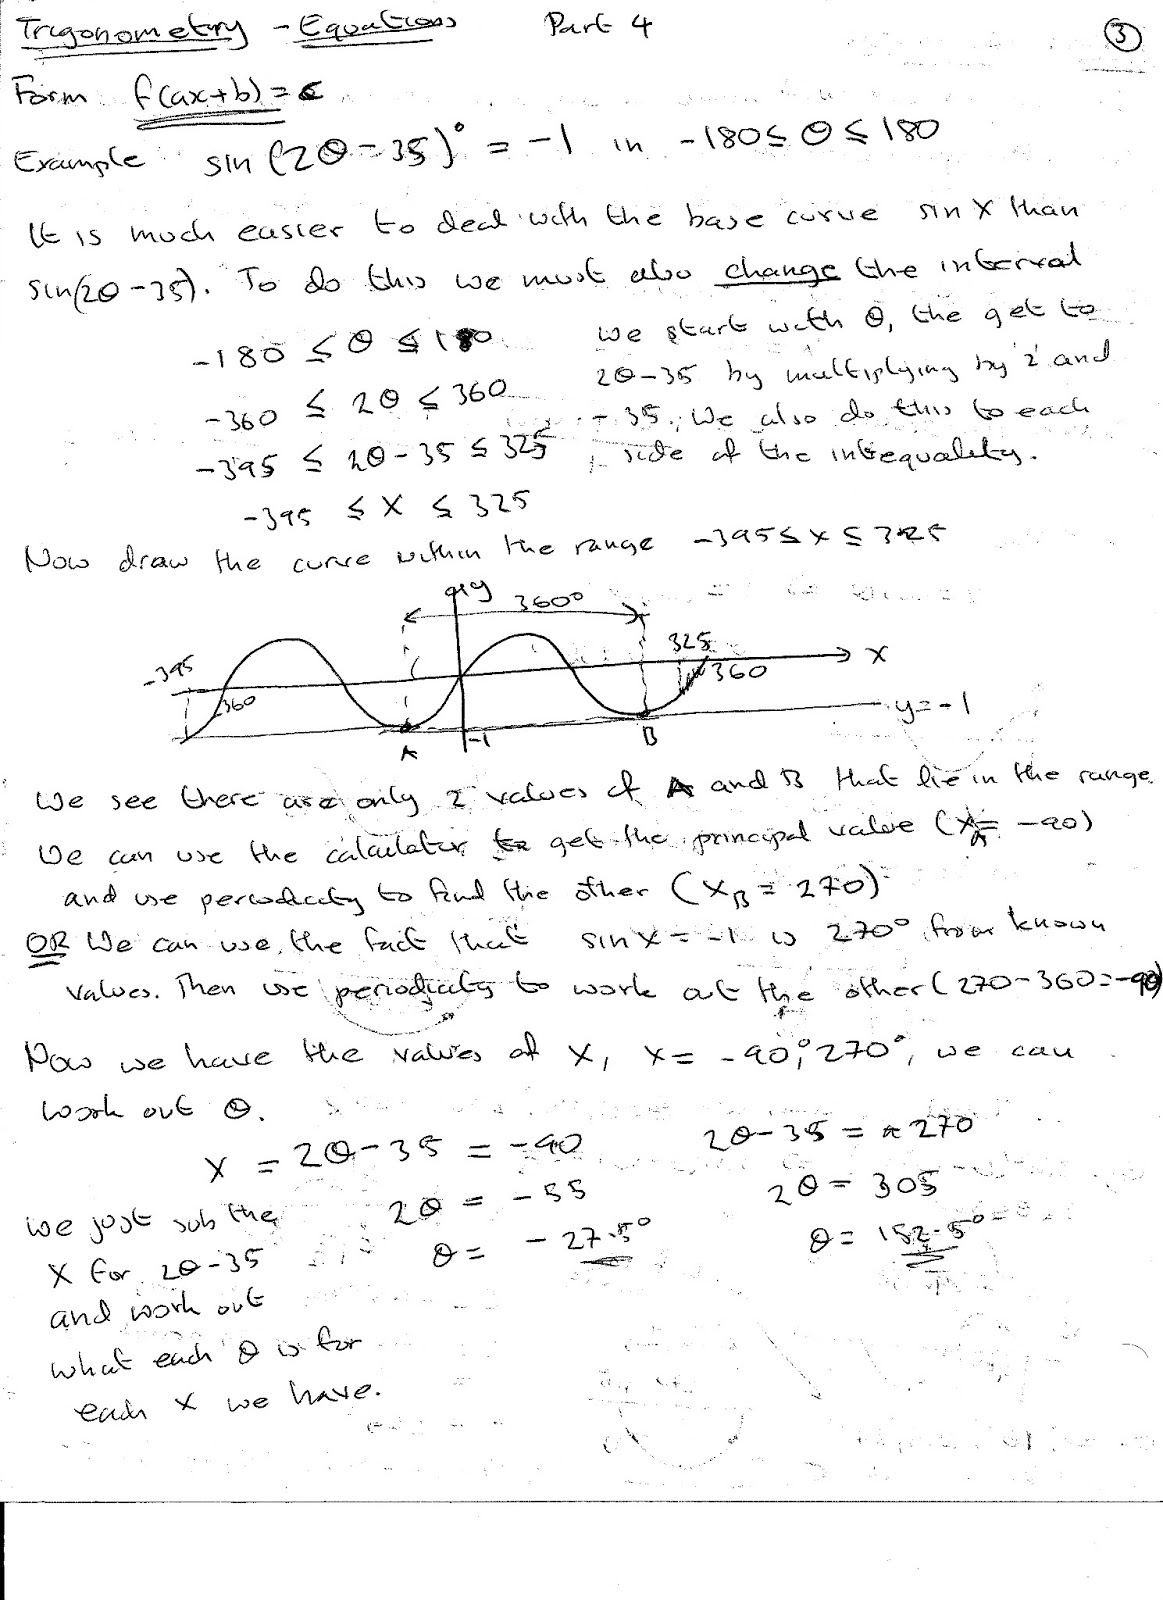 Trigonometry - Equations Part 4 3
Form f(ax+b)=c
Example sin(2θ-35)° = -1 in -180≤θ≤180
It is much easier to deal with the base curve sin X than
sin(2θ-35). To do this we must also change the interval
-180 ≤ θ ≤ 180 we start with θ, the get to
-360 ≤ 2θ ≤ 360 2θ-35 by multiplying by 2 and
-395 ≤ 2θ-35 ≤ 325 -35. We also do this to each
side of the inequality.
-395 ≤ X ≤ 325
Now draw the curve within the range -395≤x≤325
y
360°
-395 325 X
360 360
y=-1
A -1 B
We see there are only 2 values of A and B that lie in the range.
We can use the calculator to get the principal value (X_A = -90)
and use periodicity to find the other (X_B = 270)
OR We can use the fact that sin X = -1 is 270° from known
values. Then use periodicity to work out the other (270-360=-90)
Now we have the values of X, X = -90°, 270°, we can
work out θ.
X = 2θ-35 = -90 2θ-35 = 270
we just sub the 2θ = -55 2θ = 305
X for 2θ-35 θ = -27.5° θ = 152.5°
and work out
what each θ is for
each X we have.